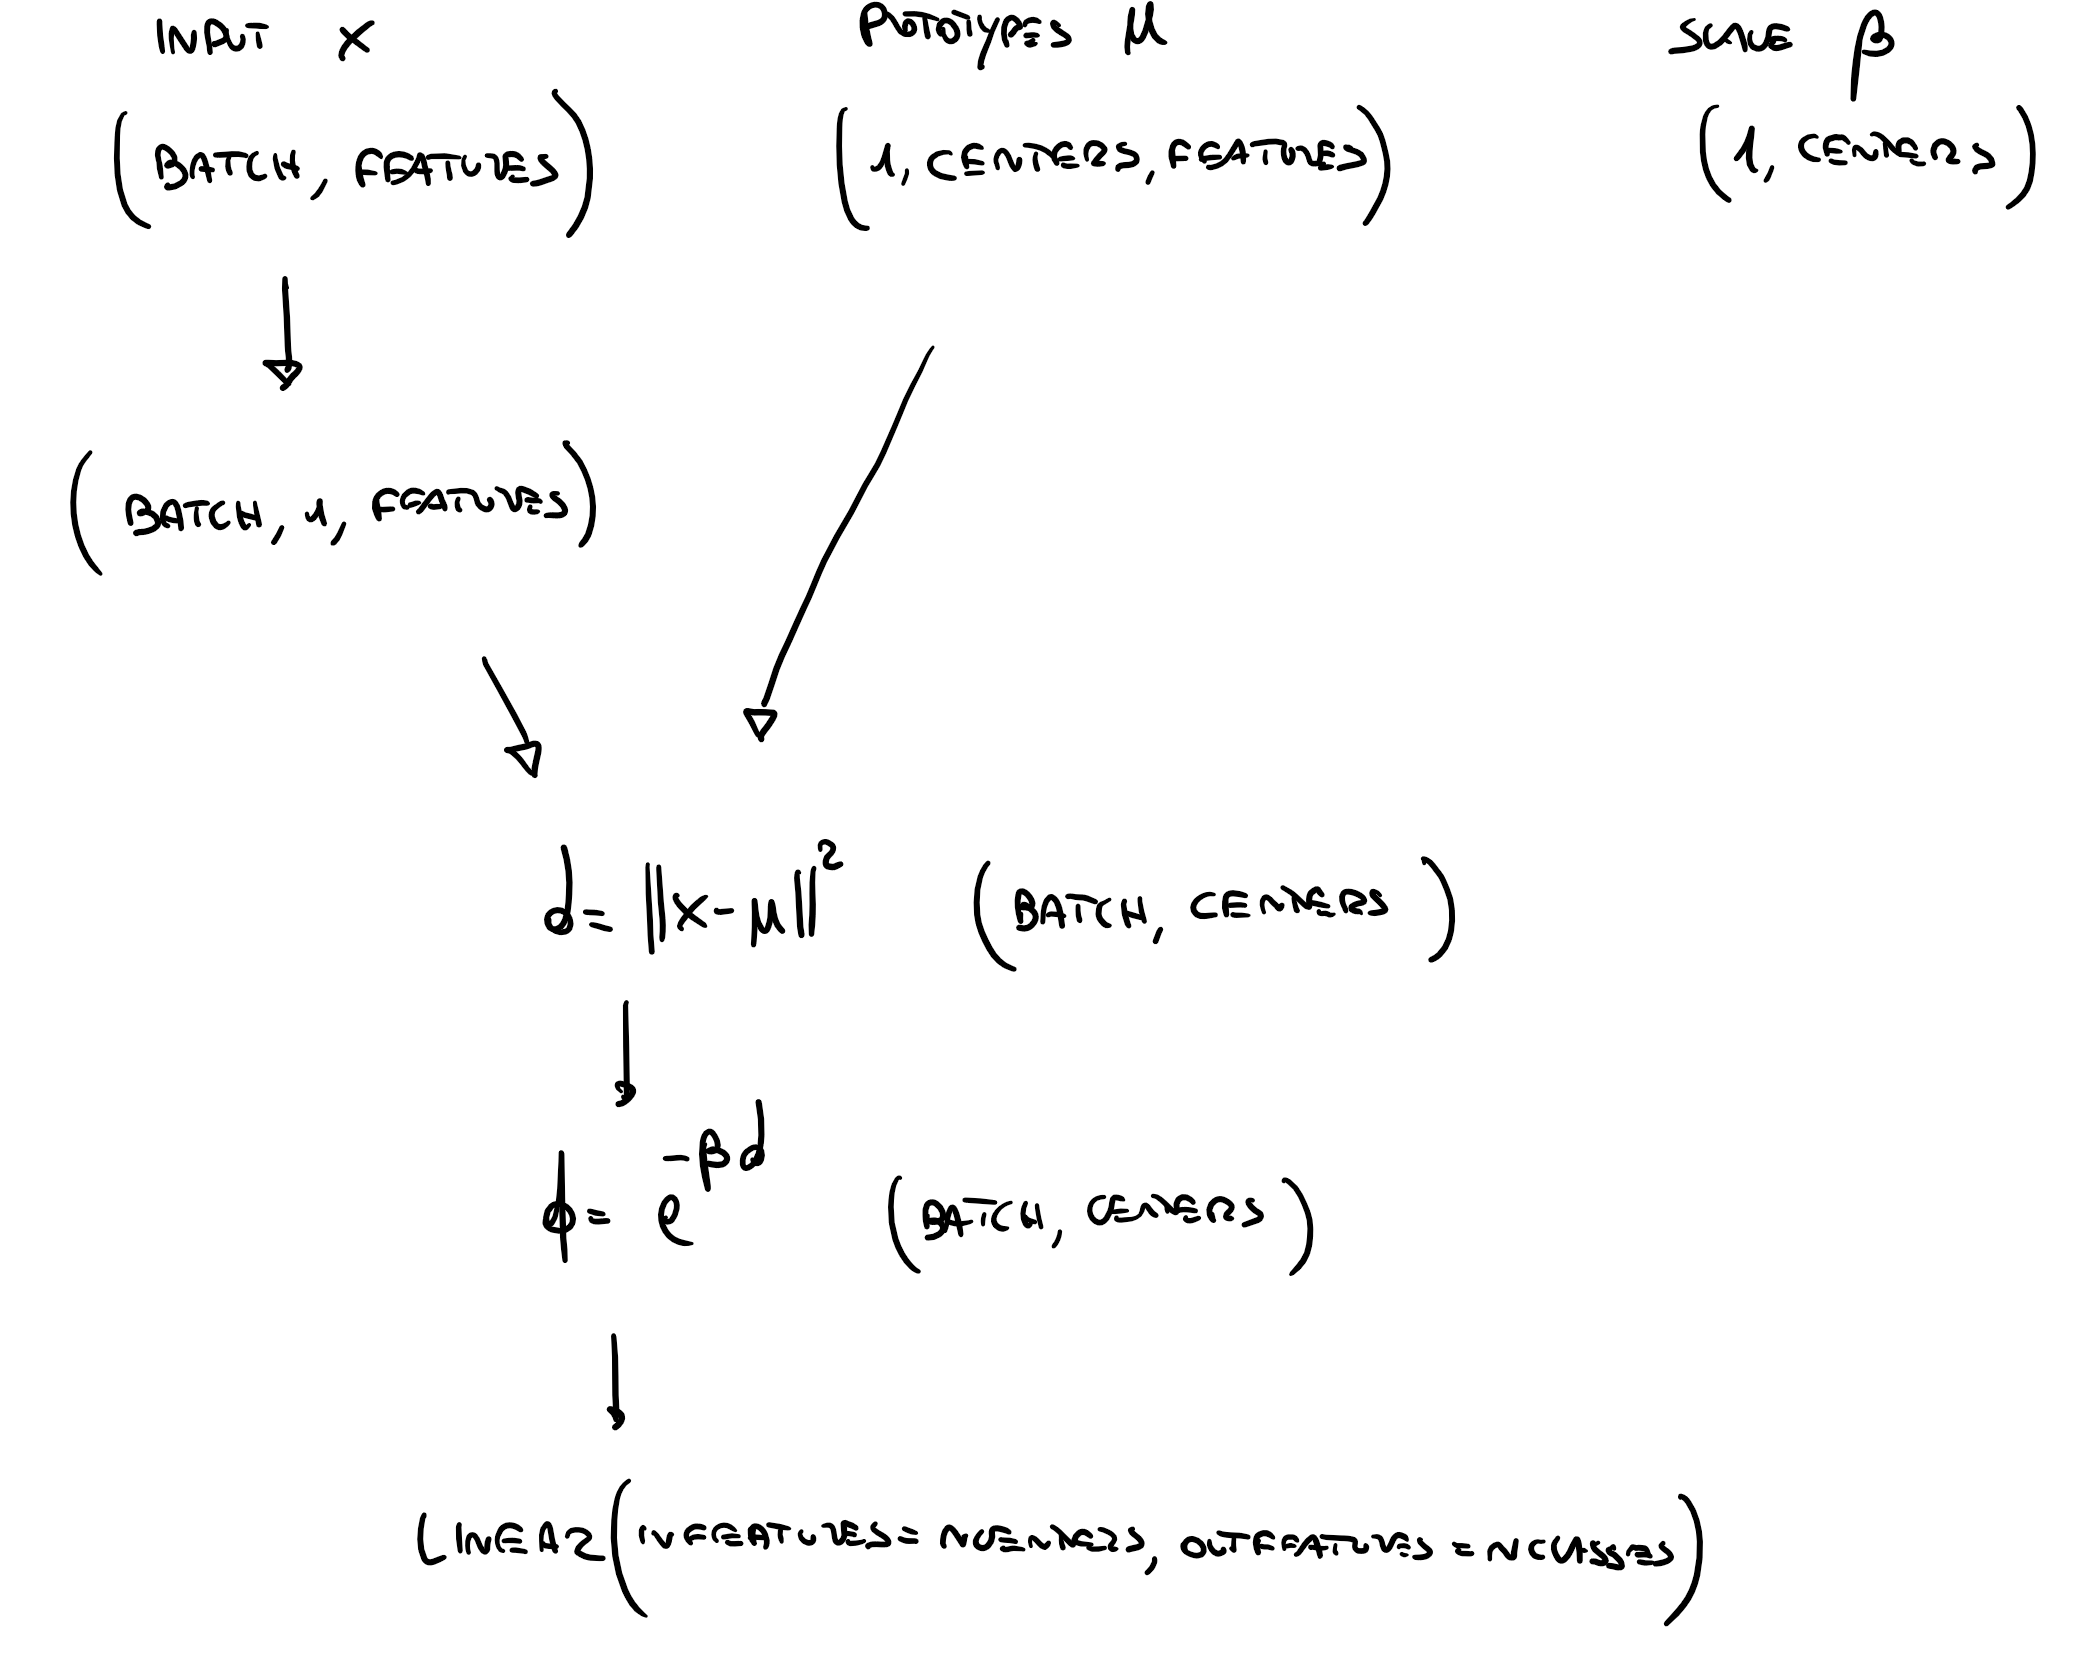 INPUT x
PROTOTYPES μ
SCALE β
(BATCH, FEATURES)
(1, CENTERS, FEATURES)
(1, CENTERS)
(BATCH, 1, FEATURES)
d = ||x-μ||² (BATCH, CENTERS)
ϕ = e^{-βd} (BATCH, CENTERS)
LINEAR(INFEATURES = NCENTERS, OUTFEATURES = NCLASSES)